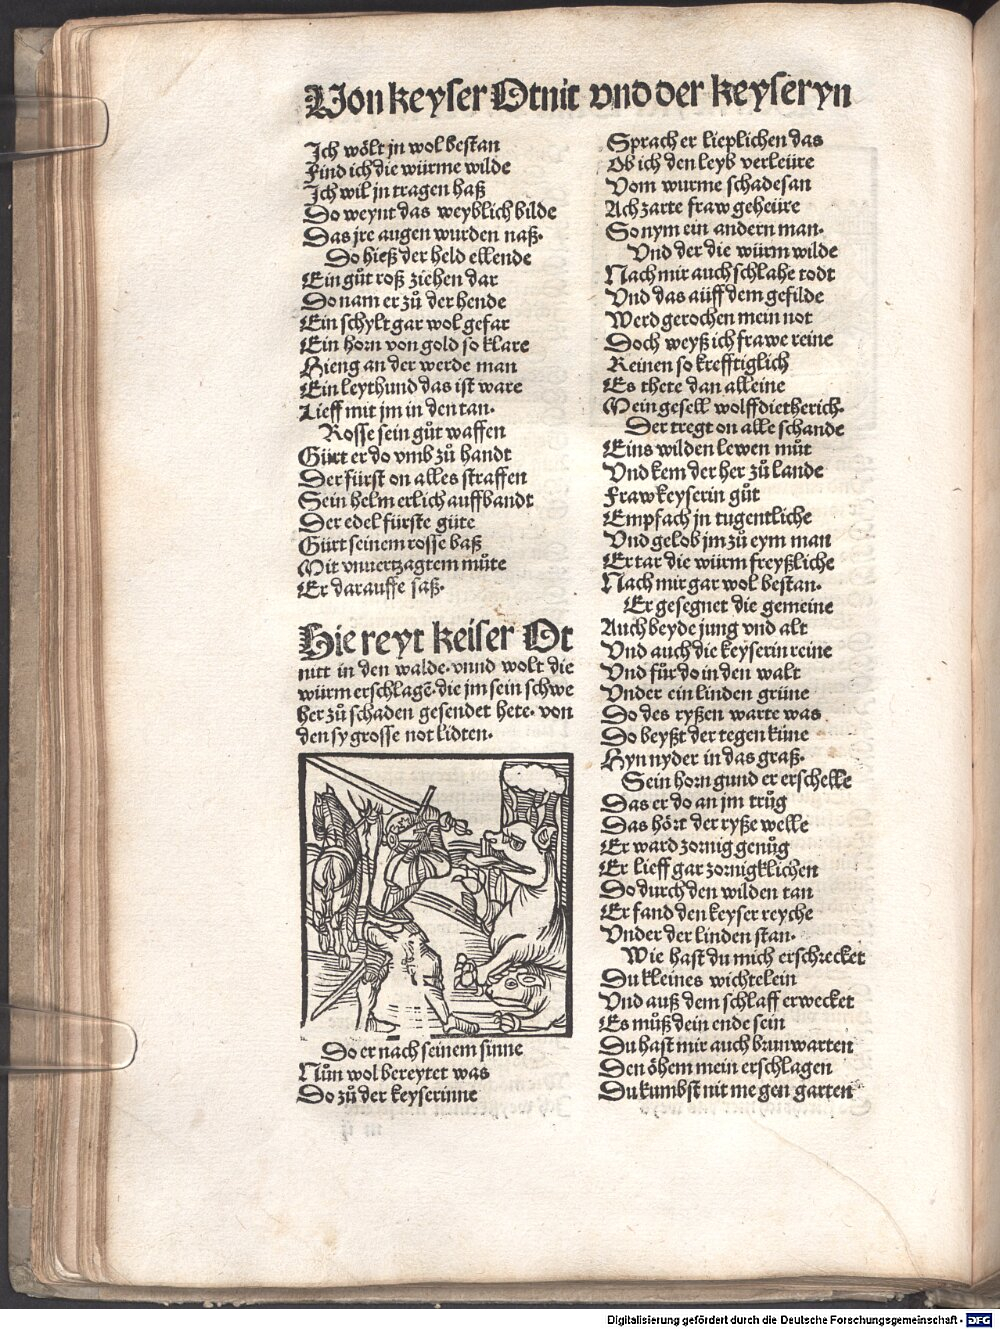 Von keyser Otnit vnd der keyseryn
Ich wölt jn wol bestan
Find ich die würme wilde
Ich wil jn tragen haß
Do weynt das weyblich bilde
Das jre augen wurden naß.
Do hieß der held ellende
Ein gůt roß ziehen dar
Do nam er zů der hende
Ein schylt gar wol gefar
Ein horn von gold so klare
Hieng an der werde man
Ein leythund das ist ware
Lieff mit jm in den tan.
Rosse sein gůt waffen
Gürt er do vmb zů handt
Der fürst on alles straffen
Sein helm erlich auffbandt
Der edel fürste güte
Gürt seinem rosse baß
Mit vnuertzagtem můte
Er darauffe saß.
Hie reyt keiser Ot
nitt in den walde. vnnd wolt die
würm erschlagē. die jm sein schwe
her zů schaden gesendet hete. von
den sy grosse not lidten.
Do er nach seinem sinne
Nůn wol bereytet was
Do zů der keyserinne
Sprach er lieplichen das
Ob ich den leyb verleüre
Vom wurme schadesan
Ach zarte fraw geheüre
So nym ein andern man.
Vnd der die würm wilde
Nach mir auch schlahe todt
Vnd das aüff dem gefilde
Werd gerochen mein not
Doch weyß ich frawe reine
Keinen so krefftiglich
Es thete dan alleine
Mein gesell wolffdietherich.
Der tregt on alle schande
Eins wilden lewen můt
Vnd kem der her zů lande
Fraw keyserin gůt
Empfach jn tugentliche
Vnd gelob jm zů eym man
Er tar die würm freyßliche
Nach mir gar wol bestan.
Er gesegnet die gemeine
Auch beyde jung vnd alt
Vnd auch die keyserin reine
Vnd fůr do in den walt
Vnder ein linden grüne
Do des ryßen warte was
Do beyßt der tegen küne
Hyn nyder in das graß.
Sein horn gund er erschelle
Das er do an jm trůg
Das hört der ryße welle
Er ward zornig genůg
Er lieff gar zornigklichen
Do durch den wilden tan
Er fand den keyser reyche
Vnder der linden stan.
Wie hast du mich erschrecket
Du kleines wichtelein
Vnd auß dem schlaff erwecket
Es můß dein ende sein
Du hast mir auch brunwarten
Den öhem mein erschlagen
Du kumbst nit me gen garten
Digitalisierung gefördert durch die Deutsche Forschungsgemeinschaft - DFG